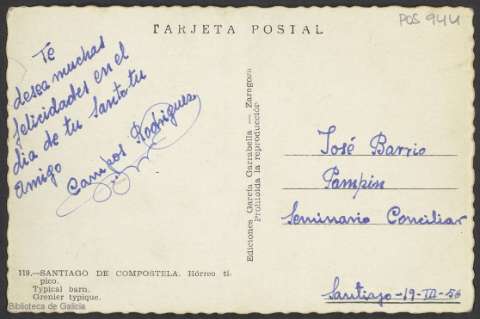 TARJETA POSTAL
POS 944
Te
desea muchas
felicidades en el
dia de tu Santo tu
amigo
Campos Rodriguez
Ediciones García Garrabella — Zaragoza
Prohibida la reproducción
José Barrio
Pampín
Seminario Conciliar
Santiago-19-III-56
119.—SANTIAGO DE COMPOSTELA. Hórreo tí-
pico.
Typical barn.
Grenier typique.
Biblioteca de Galicia